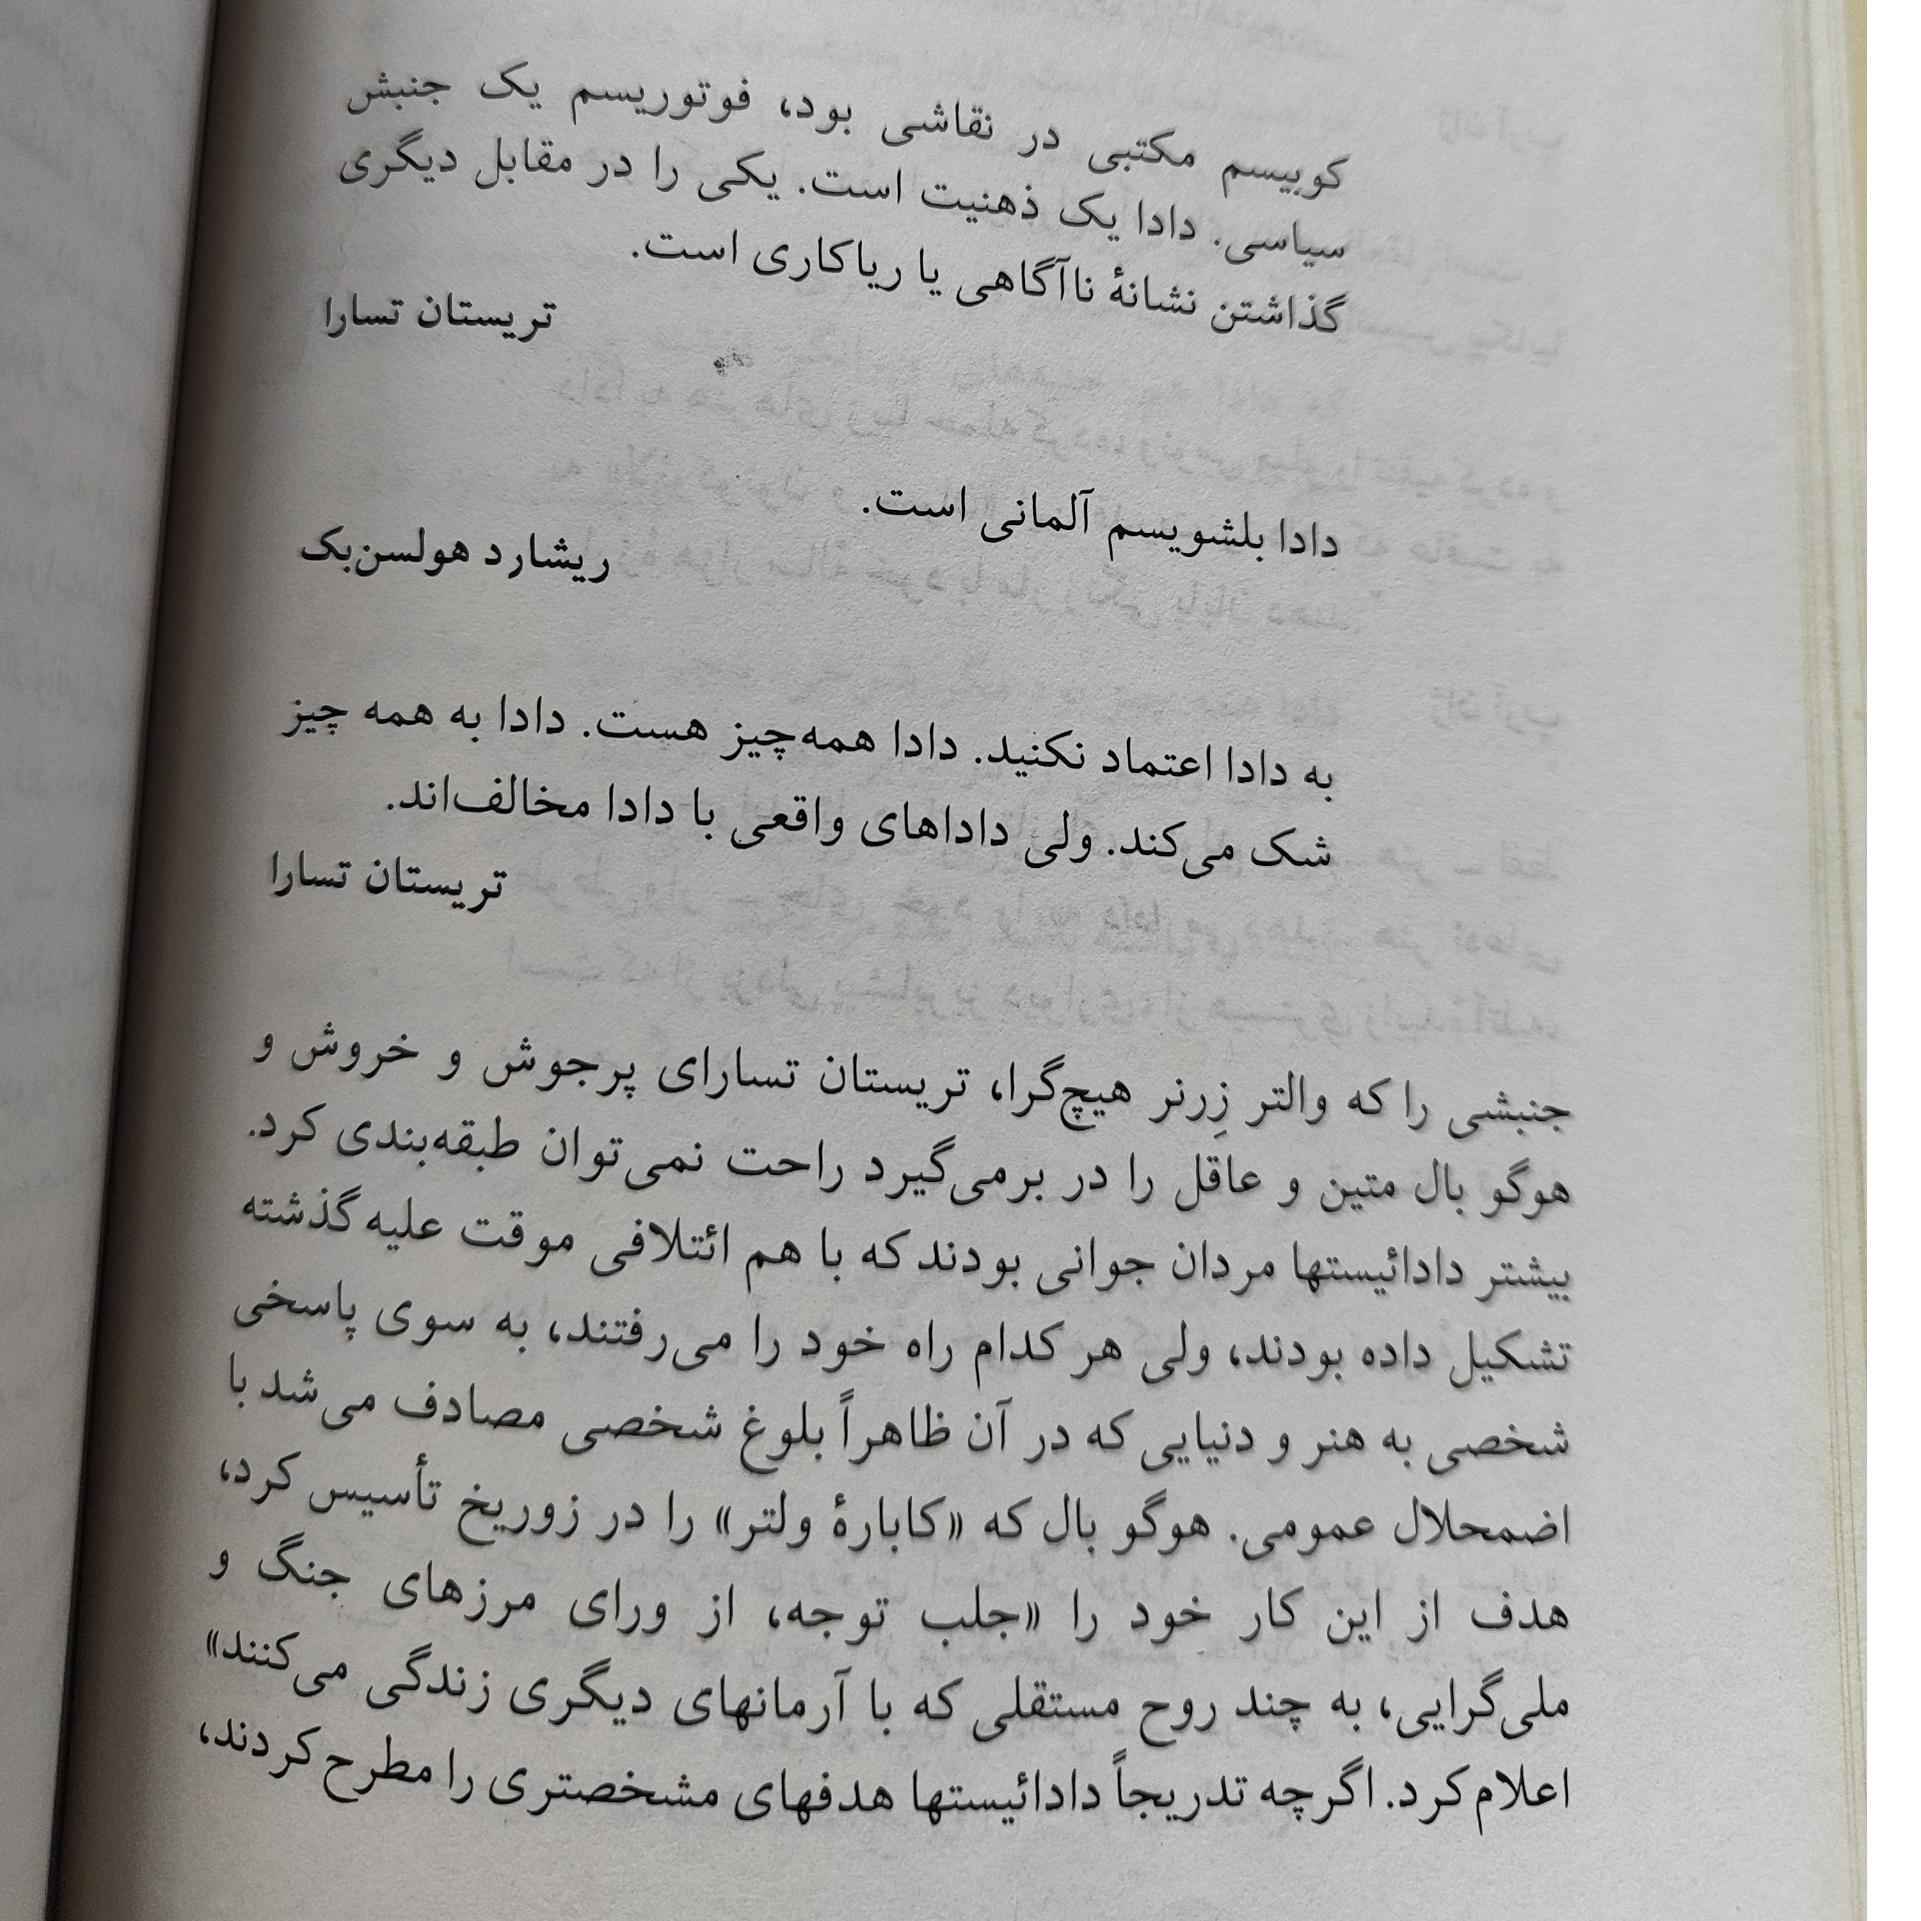 کوبیسم مکتبی در نقاشی بود، فوتوریسم یک جنبش
سیاسی. دادا یک ذهنیت است. یکی را در مقابل دیگری
گذاشتن نشانهٔ ناآگاهی یا ریاکاری است.
تریستان تسارا
دادا بلشویسم آلمانی است.
ریشارد هولسن‌بک
به دادا اعتماد نکنید. دادا همه‌چیز هست. دادا به همه چیز
شک می‌کند. ولی داداهای واقعی با دادا مخالف‌اند.
تریستان تسارا
جنبشی را که والتر زِرنر هیچ‌گرا، تریستان تسارای پرجوش و خروش و
هوگو بال متین و عاقل را در برمی‌گیرد راحت نمی‌توان طبقه‌بندی کرد.
بیشتر دادائیستها مردان جوانی بودند که با هم ائتلافی موقت علیه گذشته
تشکیل داده بودند، ولی هر کدام راه خود را می‌رفتند، به سوی پاسخی
شخصی به هنر و دنیایی که در آن ظاهراً بلوغ شخصی مصادف می‌شد با
اضمحلال عمومی. هوگو بال که «کابارهٔ ولتر» را در زوریخ تأسیس کرد،
هدف از این کار خود را «جلب توجه، از ورای مرزهای جنگ و
ملی‌گرایی، به چند روح مستقلی که با آرمانهای دیگری زندگی می‌کنند»
اعلام کرد. اگرچه تدریجاً دادائیستها هدفهای مشخصتری را مطرح کردند،